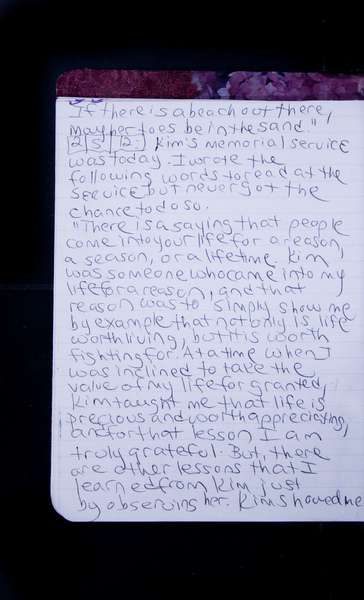 If there is a beach out there,
may her toes be in the sand."
2|5|12: Kim's memorial service
was today. I wrote the
following words to read at the
service but never got the
chance to do so.
"There is a saying that people
come into your life for a reason,
a season, or a lifetime. Kim
was someone who came into my
life for a reason, and that
reason was to simply show me
by example that not only is life
worth living, but it is worth
fighting for. At a time when I
was inclined to take the
value of my life for granted,
Kim taught me that life is
precious and worth appreciating,
and for that lesson I am
truly grateful. But, there
are other lessons that I
learned from Kim just
by observing her. Kim showed me